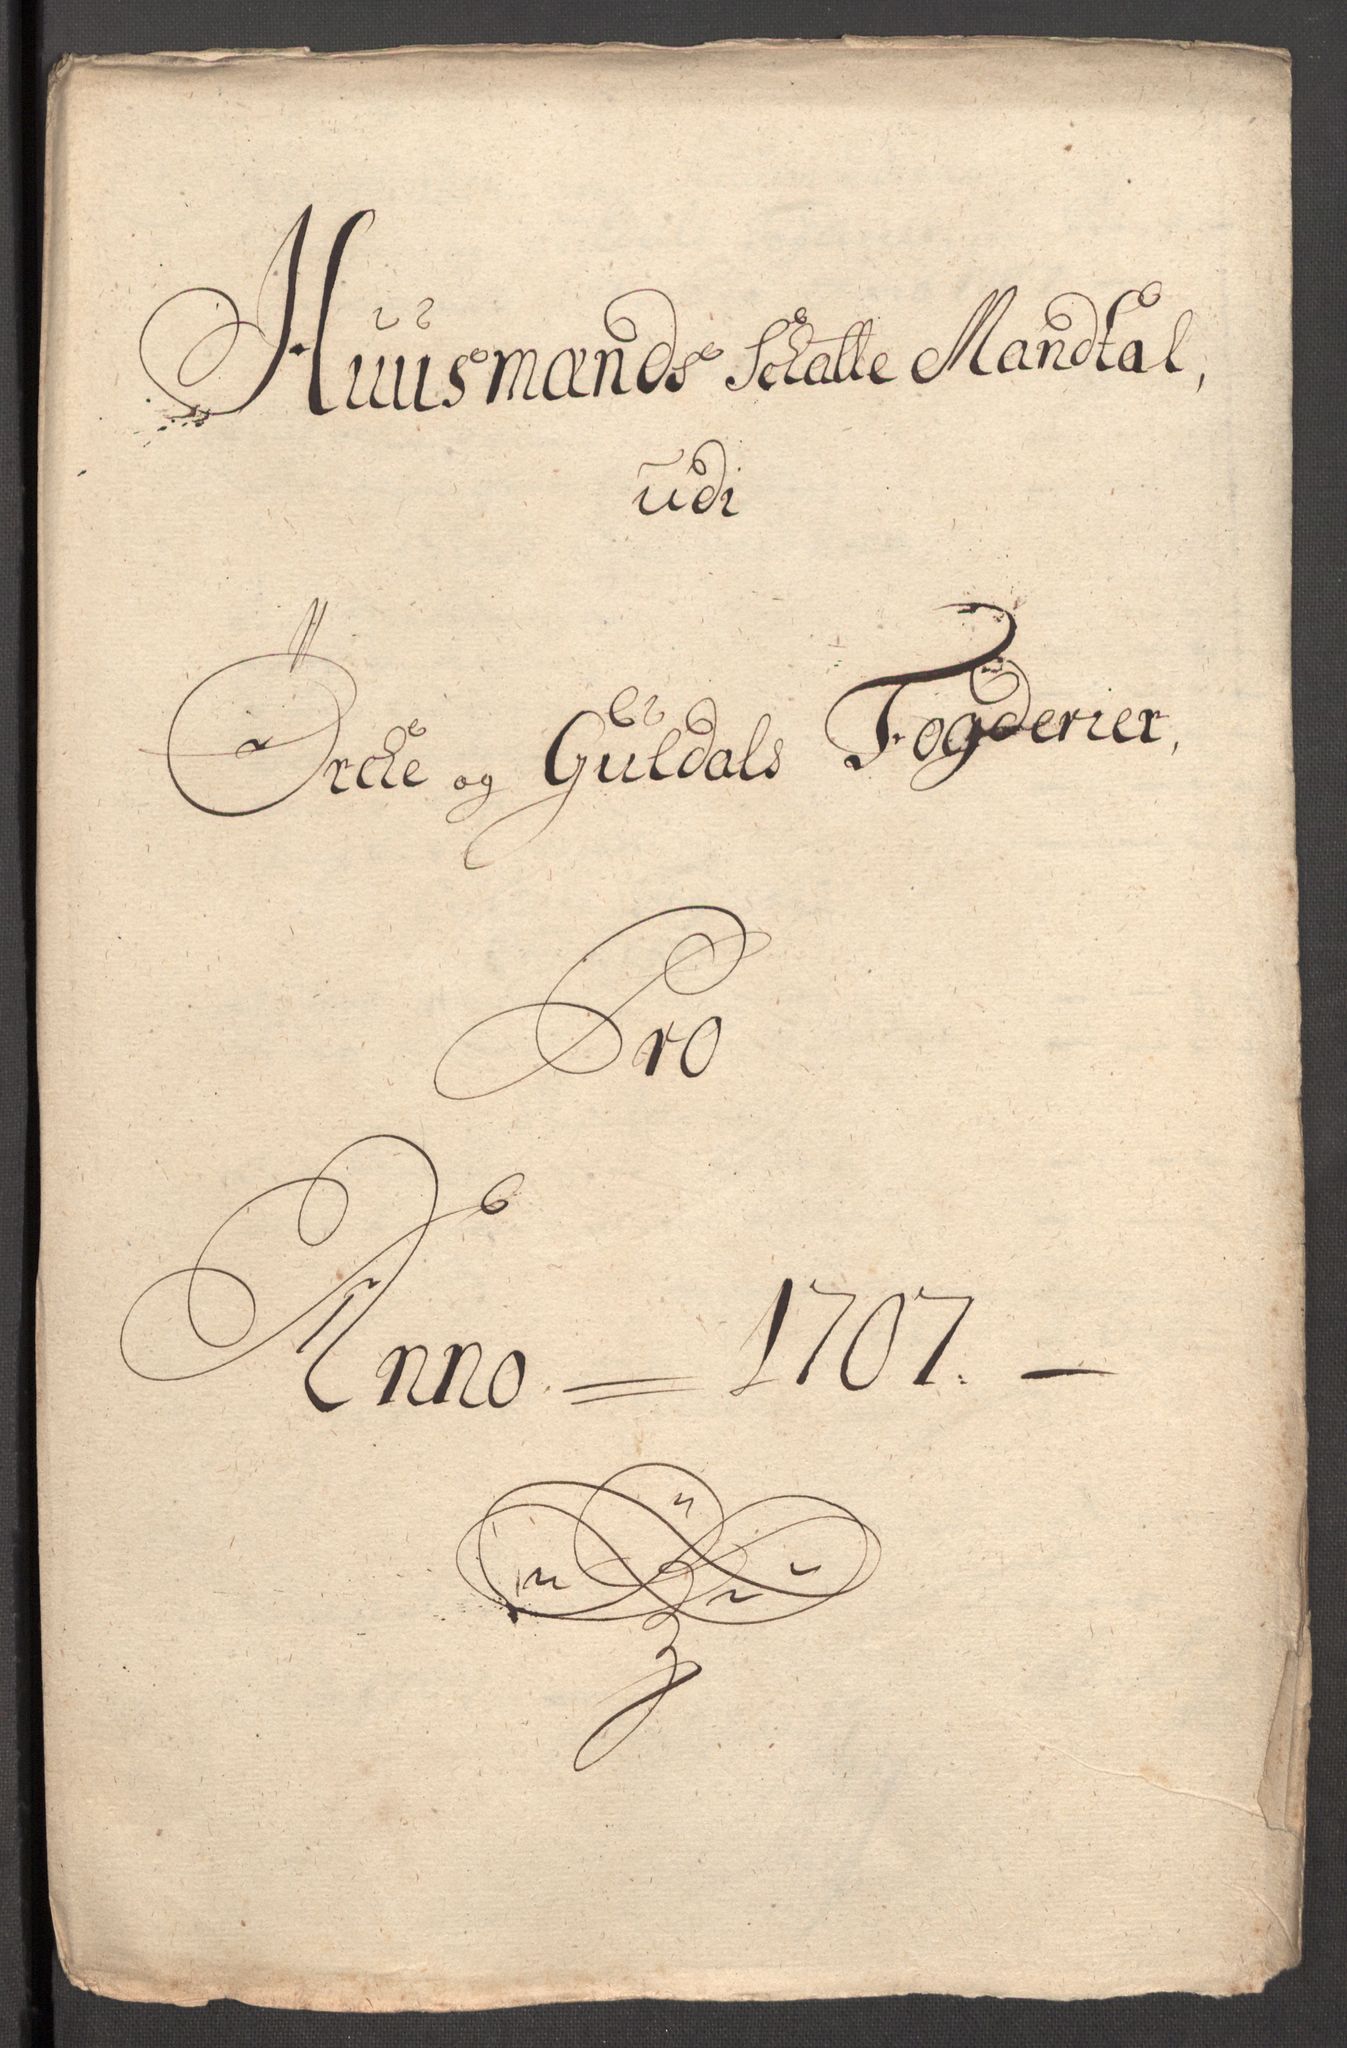 Huusmænds Schatte Mandtal,
udi
Örcke og Guldals Fogderier,
Pro
Anno = 1707. —